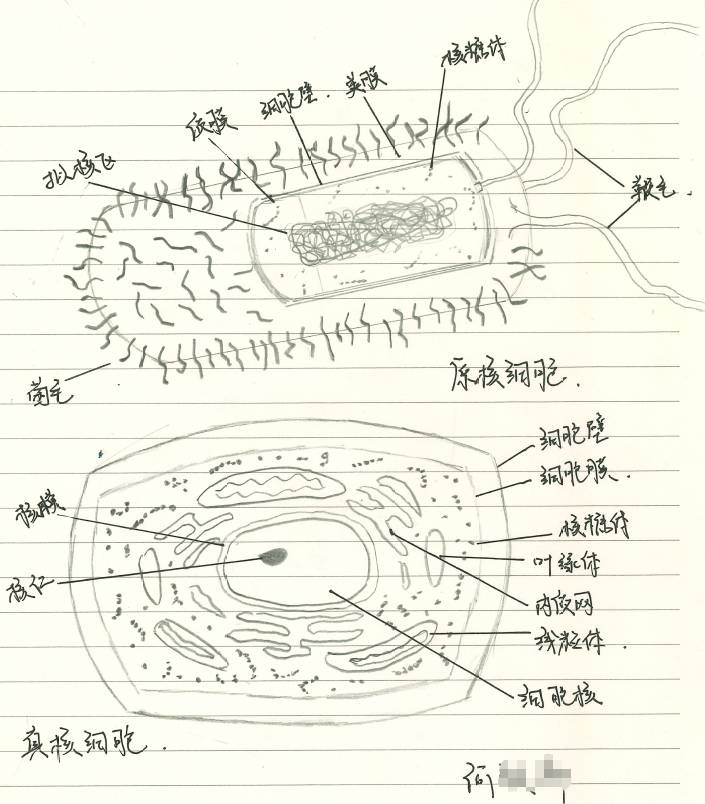 核糖体
荚膜
细胞壁.
质膜
拟核区
鞭毛.
菌毛
原核细胞.
细胞壁
细胞膜.
核膜
核糖体
叶绿体
核仁
内质网
线粒体.
细胞核
真核细胞.
何